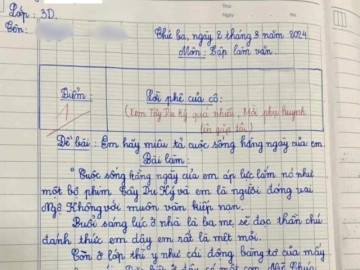 Lớp: 3D.
Tên:
Thứ ba, ngày 2 tháng 3 năm 2024
Môn: Tập làm văn.
Điểm: Lời phê của cô:
1 (Xem Tây Du Ký quá nhiều. Mời phụ huynh
lên gặp tôi)
Đề bài: Em hãy miêu tả cuộc sống hằng ngày của em
Bài làm:
"Cuộc sống hằng ngày của em áp lực lắm nó như
một bộ phim Tây Du Ký và em là người đóng vai
Ngộ Không với muôn vàn kiếp nạn.
Buổi sáng lúc ở nhà là ba mẹ sẽ đọc thần chú
đánh thức em dậy em rất là mệt mỏi.
Còn ở lớp thì y như cái động bàng tơ của mấy